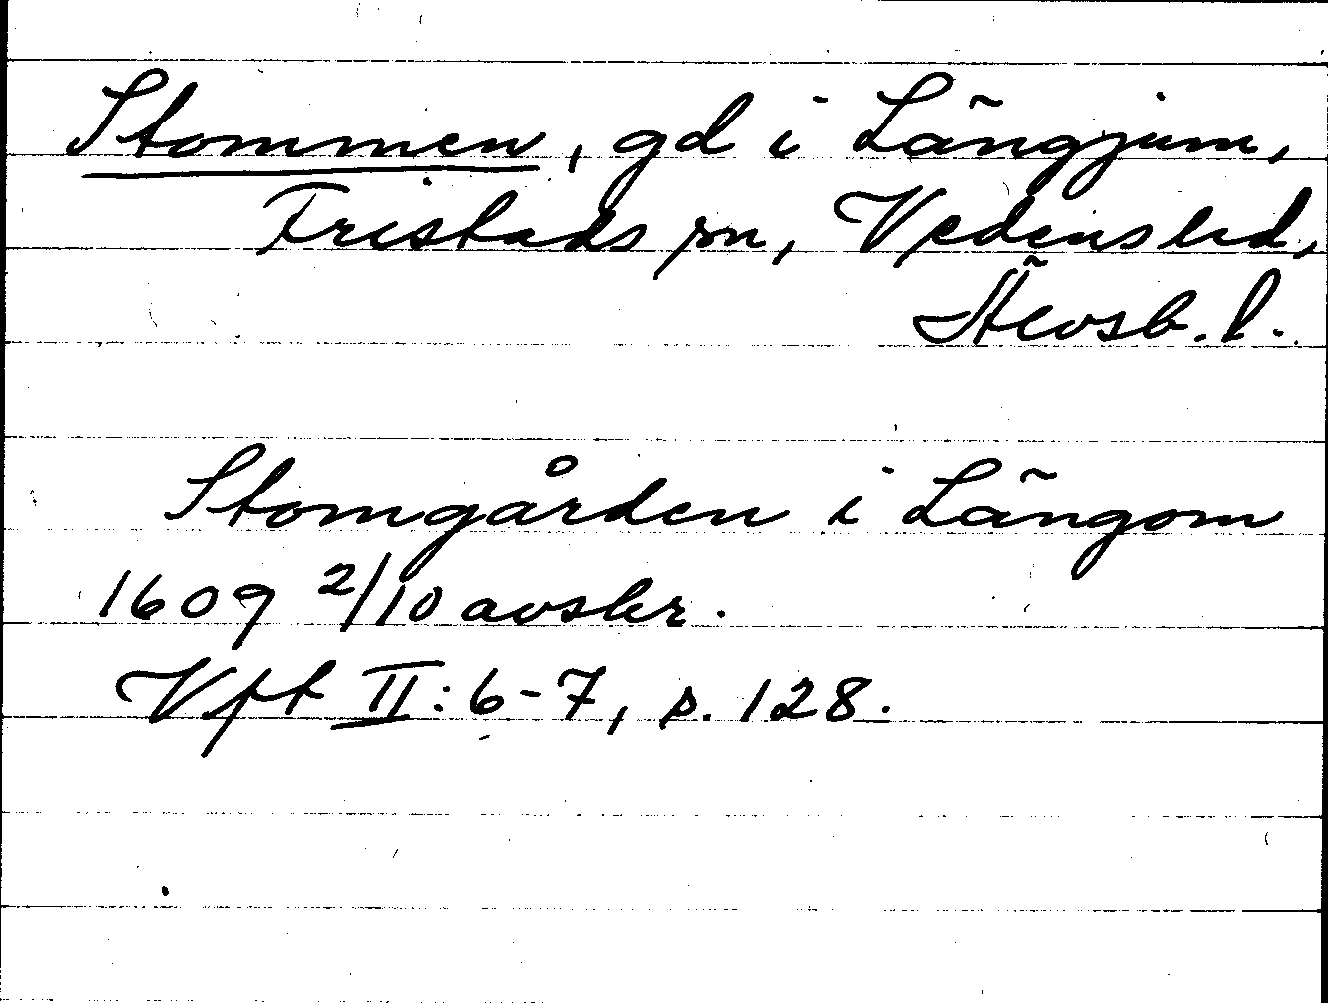 Stommen, gd i Längjum,
Fristads sn, Vedens hd,
Älvsb. l.
Stomgården i Längom
1609 2/10 avskr.
Vft II: 6-7, s. 128.